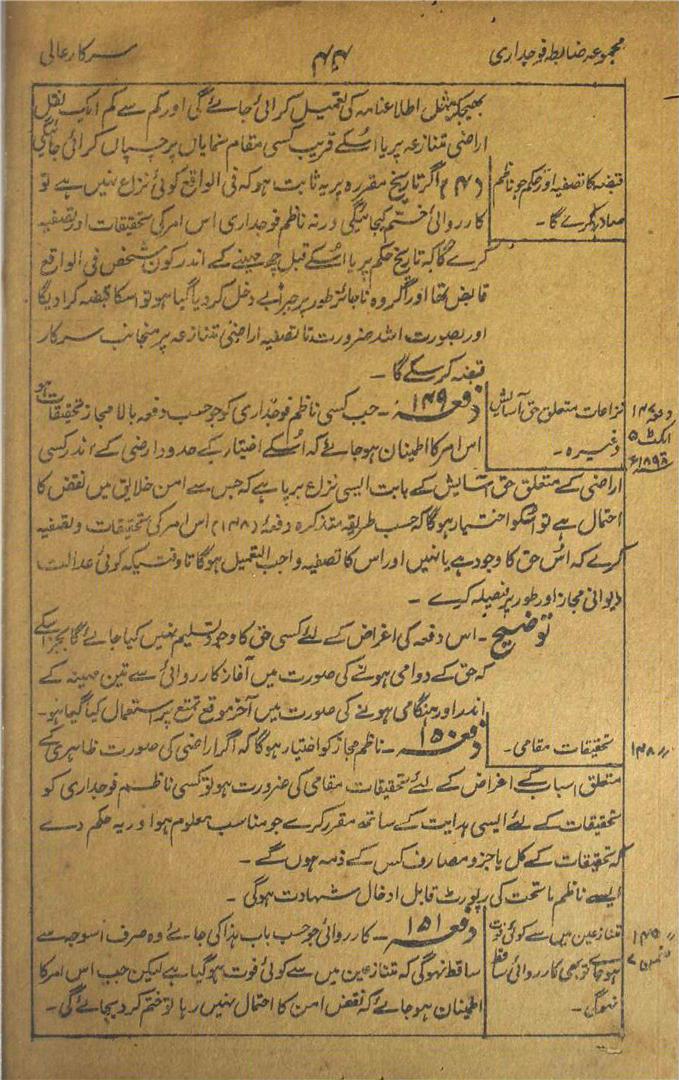 مجموعہ ضابطہ فوجداری
سرکار عالی
بھیجکر مثل اطلاعنامہ کی تعمیل کرائی جائے گی اور کم سے کم ایک نقل
اراضی متنازعہ پر یا اسکے قریب کسی مقام نمایاں پر چسپاں کرائی جائیگی
قبضہ کا تصفیہ اور حکم جو ناظم
صادر کرے گا۔
(۴) اگر تاریخ مقررہ پر یہ ثابت ہو کہ فی الواقع کوئی نزاع نہیں ہے تو
کارروائی ختم کیجائیگی ورنہ ناظم فوجداری اس امر کی تحقیقات اور تصفیہ
کرے گا کہ تاریخ حکم پر یا اسکے قبل چھ مہینے کے اندر کون شخص فی الواقع
قابض تھا اور اگر وہ ناجائز طور پر جبراً بے دخل کر دیا گیا ہو تو اسکا قبضہ کرا دیگا
اور بصورت اشد ضرورت تا تصفیہ اراضی متنازعہ پر منجانب سرکار
قبضہ کر سکے گا۔
دفعہ ۱۴۷
ایکٹ ۵
۱۸۹۸ع
نزاعات متعلق حق آسایش
وغیرہ۔
دفعہ ۱۴۹۔ جب کسی ناظم فوجداری کو جو حسب دفعہ بالا مجاز تحقیقات ہو
اس امر کا اطمینان ہو جائے کہ اسکے اختیار کے حدود ارضی کے اندر کسی
اراضی کے متعلق حق آسایش کے بابت ایسی نزاع برپا ہے کہ جس سے امن خلایق میں نقض کا
احتمال ہے تو اسکو اختیار ہوگا کہ حسب طریقہ متذکرہ دفعہ (۱۴۸) اس امر کی تحقیقات و تصفیہ
کرے کہ اس حق کا وجود ہے یا نہیں اور اس کا تصفیہ واجب التعمیل ہوگا تاوقتیکہ کوئی عدالت
دیوانی مجاز اور طور پر فیصلہ کرے۔
توضیح۔ اس دفعہ کی اغراض کے لئے کسی حق کا وجود تسلیم نہیں کیا جائے گا بجز اسکے
کہ حق کے دوامی ہونے کی صورت میں آغاز کارروائی سے تین مہینہ کے
اندر اور ہنگامی ہونے کی صورت میں آخر موقع تمتع پر استعمال کیا گیا ہو۔
〃 ۱۴۸
تحقیقات مقامی۔
دفعہ ۱۵۰۔ ناظم مجاز کو اختیار ہوگا کہ اگر اراضی کی صورت ظاہری کے
متعلق اس باب کے اغراض کے لئے تحقیقات مقامی کی ضرورت ہو تو کسی ناظم فوجداری کو
تحقیقات کے لئے ایسی ہدایت کے ساتھ مقرر کرے جو مناسب معلوم ہو اور یہ حکم دے
کہ تحقیقات کے کل یا جزو مصارف کس کے ذمہ ہوں گے۔
ایسے ناظم ماتحت کی رپورٹ قابل ادخال شہادت ہوگی۔
〃 ۱۴۵
ضمن ۷
متنازعین میں سے کوئی فوت
ہو جائے تو بھی کارروائی ساقط
نہوگی۔
دفعہ ۱۵۱۔ کارروائی جو حسب باب ہذا کی جائے وہ صرف اسوجہ سے
ساقط نہوگی کہ متنازعین میں سے کوئی فوت ہو گیا ہے لیکن جب اس امر کا
اطمینان ہو جائے کہ نقض امن کا احتمال نہیں رہا تو ختم کر دیجائے گی۔